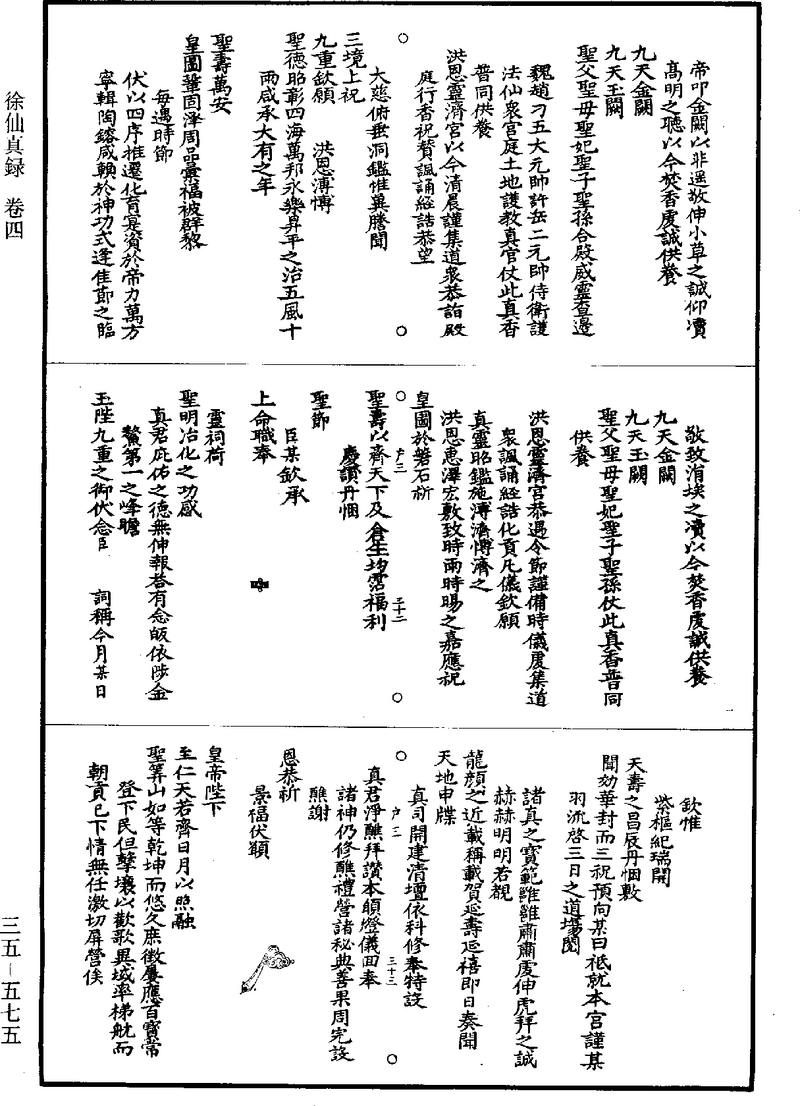 徐仙真録　卷四
帝叩金闕以非遥敬伸小草之誠仰瀆
高明之聽以今焚香虔誠供養
九天金闕
九天玉闕
聖父聖母聖妃聖子聖孫合殿威靈查邊
魏趙刁五大元帥許岳二元帥侍衛護
法仙衆官庭土地護教真官仗此真香
普同供養
洪恩靈濟宮以今清晨謹集道衆恭詣殿
庭行香祝贊諷誦經誥恭望
大慈俯垂洞鑑惟冀騰聞
三境上祝
九重欽願　洪恩溥博
聖德昭彰四海萬邦永樂昇平之治五風十
雨咸承大有之年
聖壽萬安
皇圖鞏固澤周品彙福被群黎
每遇時節
伏以四序推遷化育寔資於帝力萬方
寧輯陶鎔咸賴於神功式逢佳節之臨
敬致涓埃之瀆以今焚香虔誠供養
九天金闕
九天玉闕
聖父聖母聖妃聖子聖孫仗此真香普同
供養
洪恩靈濟宮恭遇令節謹備時儀虔集道
衆諷誦經誥化貢凡儀欽願
真靈昭鑑施溥濟愽濟之
洪恩惠澤宏敷致時雨時暘之嘉應祝
皇圖於磐石祈
户三　三十二
聖壽以齊天下及倉生均霑福利
慶讚丹悃
聖節
臣某欽承
上命職奉
靈祠荷
聖明治化之功感
真君庇佑之德無伸報荅有念皈依陟金
鰲第一之峰瞻
玉陛九重之御伏念臣　詞稱今月某日
欽惟
紫樞紀瑞開
天壽之昌辰丹悃敷
聞効華封而三祝預向某日祇就本宮謹某
羽流啓三日之道場閱
諸真之寶範雝雝肅肅虔伸虎拜之誠
赫赫明明若覩
龍顔之近載稱載賀延壽延禧即日奏聞
天地申牒
真司開建清壇依科修奉特設
户三　三十三
真君淨醮拜讚本頠燈儀回奉
諸神仍修醮禮營諸秘典善果周完設
醮謝
恩恭祈
景福伏願
皇帝陛下
至仁天若齊日月以照融
聖筭山如等乾坤而悠久庶徵屢應百寶常
登下民但擊壤以歡歌異域率梯航而
朝貢已下情無任激切屏營俟
三五－五七五